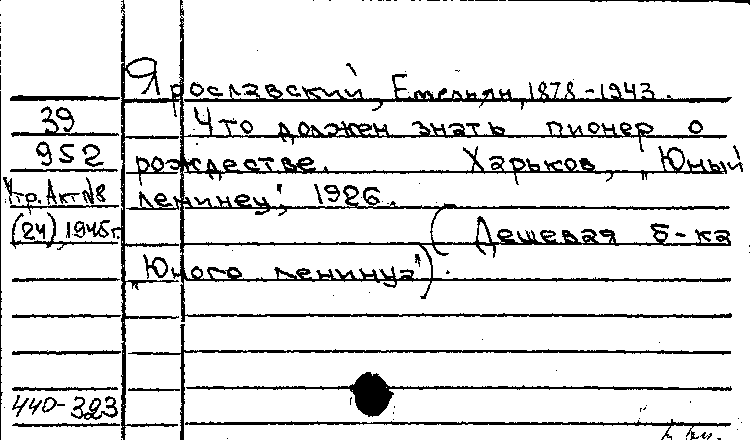 Ярославский, Емельян, 1878-1943.
39
Что должен знать пионер о
952
рождестве. Харьков, „Юный
Утр. Акт №8
ленинец", 1926.
(24), 1945г.
(Дешевая б-ка
„Юного ленинца").
440-323